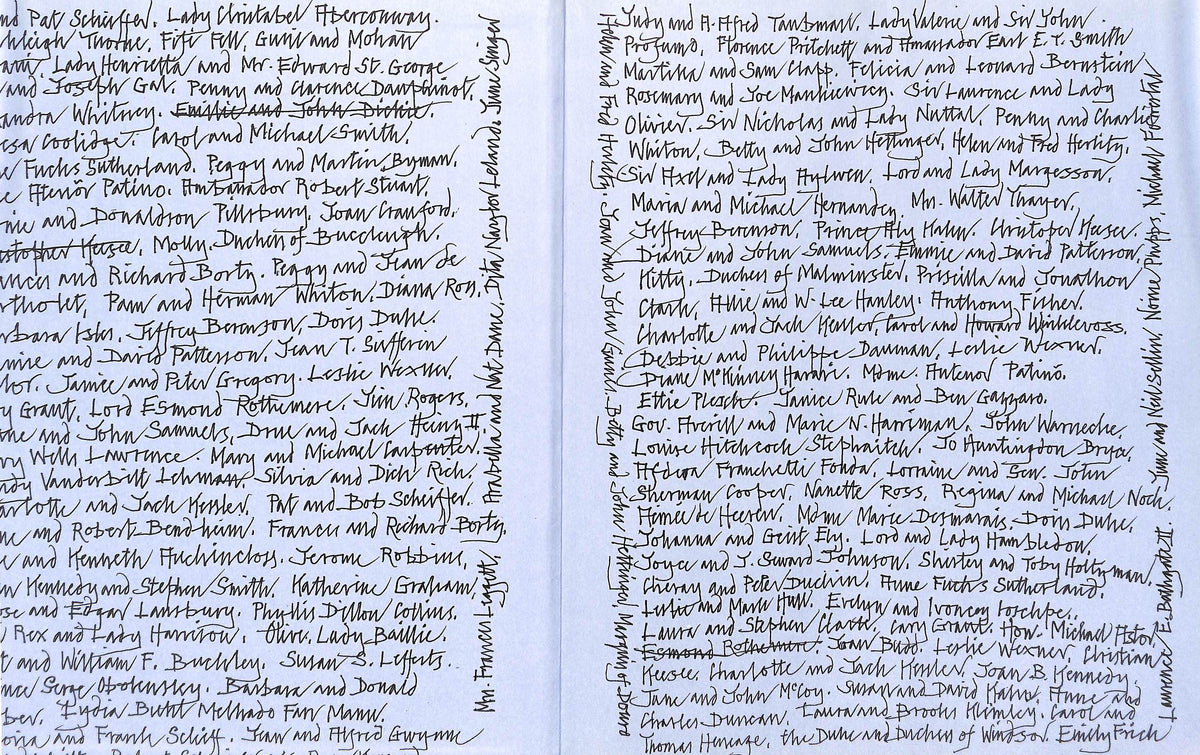 nd Pat Schiffer. Lady Christabel Aberconway.
hleigh Thorne. Fifi Fell, Gunil and Mohan
Lady Henrietta and Mr. Edward St. George
and Joseph Gal. Penny and Clarence Dauphinot.
andra Whitney. Emilie and John Dickie.
esa Coolidge. Carol and Michael Smith.
e Fuchs Sutherland. Peggy and Martin Byman.
e Atenor Patino. Ambassador Robert Stuart.
nie and Donaldson Pillsbury. Joan Crawford.
Molly. Duchess of Buccleugh.
ances and Richard Borty. Peggy and Jean de
rtholet, Pam and Herman Whiton, Diana Ross.
rbara Isles. Jeffrey Berenson, Doris Duke.
mie and David Patterson. Jean T. Sufferen
ler. Janice and Peter Gregory. Leslie Wexner.
y Grant, Lord Esmond Rothemere. Jim Rogers.
ne and John Samuels, Drue and Jack Heinz II.
ry Wells Lawrence. Mary and Michael Carpenter.
ndy Vanderbilt Lehman. Silvia and Dick Rich.
arlotte and Jack Kessler. Pat and Bob Schieffer.
ne and Robert Bendheim. Frances and Richard Borty.
e and Kenneth Auchincloss. Jerome Robbins,
n Kennedy and Stephen Smith. Katherine Graham,
ose and Edgar Lansbury. Phyllis Dillon Collins.
Rex and Lady Harrison. Olive, Lady Baillie.
t and William F. Buckley. Susan S. Lefferts.
nce Serge Obolensky. Barbara and Donald
ber. Lydia Buht Melhado Fan Mann.
oria and Frank Schiff. Jean and Alfred Gwynne
Mrs. Francis Leggett. Arabella and Nat Dane, Dita Naylor Leland. June Singer
Helen and Fred Herlity. Joan and John Gunnel. Betty and John Hettinger, Marquis of Douro
Judy and A. Alfred Taubman. Lady Valerie and Sir John
Profumo. Florence Pritchett and Amassador Earl E.T. Smith
Martina and Sam Clapp. Felicia and Leonard Bernstein
Rosemary and Joe Mankiewicz. Sir Laurence and Lady
Olivier. Sir Nicholas and Lady Nuttal. Penny and Charlie
Whiton, Betty and John Hettinger, Helen and Fred Herlity.
Sir Axel and Lady Aylwen. Lord and Lady Margesson.
Maria and Michael Hernandez. Mrs. Walter Thayer,
Jeffrey Berenson, Prince Aly Kahn. Christofer Keesee.
Diane and John Samuels, Emmie and David Patterson,
Kitty, Duchess of Malminster, Priscilla and Jonathon
Clark, Allie and W. Lee Hanley. Anthony Fisher.
Charlotte and Jack Kessler, Carol and Howard Winklevoss.
Debbie and Philippe Dauman. Leslie Wexner.
Diane McKinney Harare. Mdme. Antenor Patino.
Ettie Plesch. Janice Rule and Ben Gazzaro.
Gov. Averill and Marie N. Harriman. John Warnecke.
Louise Hitchcock Stephaitch. Jo Huntingdon Bryce,
Afdera Franchetti Fonda, Lorraine and Sen. John
Sherman Cooper, Nanette Ross, Regina and Michael Noch.
Aimee de Heeren. Mdme Marie Desmarais. Doris Duke.
Johanna and Geist Ely. Lord and Lady Hambledon.
Joyce and J. Seward Johnson, Shirley and Toby Holtzman,
Cheray and Peter Duchin. Anne Fuchs Sutherland.
Leslie and Mark Hull. Evelyn and Ivoncey Ioschpe.
Laura and Stephen Clark. Cary Grant. Hon. Michael Astor.
Esmond Rothemere. Joan Budd. Leslie Wexner, Christian
Keesee, Charlotte and Jack Kessler, Joan B. Kennedy.
Jane and John McCoy. Susan and David Kahn. Anne and
Charles Duncan. Laura and Brooks Klimley. Carol and
Thomas Heneage. the Duke and Duchess of Windsor. Emily Frick
Laurence E. Bathgate III. June and Neil Sellin. Nonie Phipps, Michael Forrestal